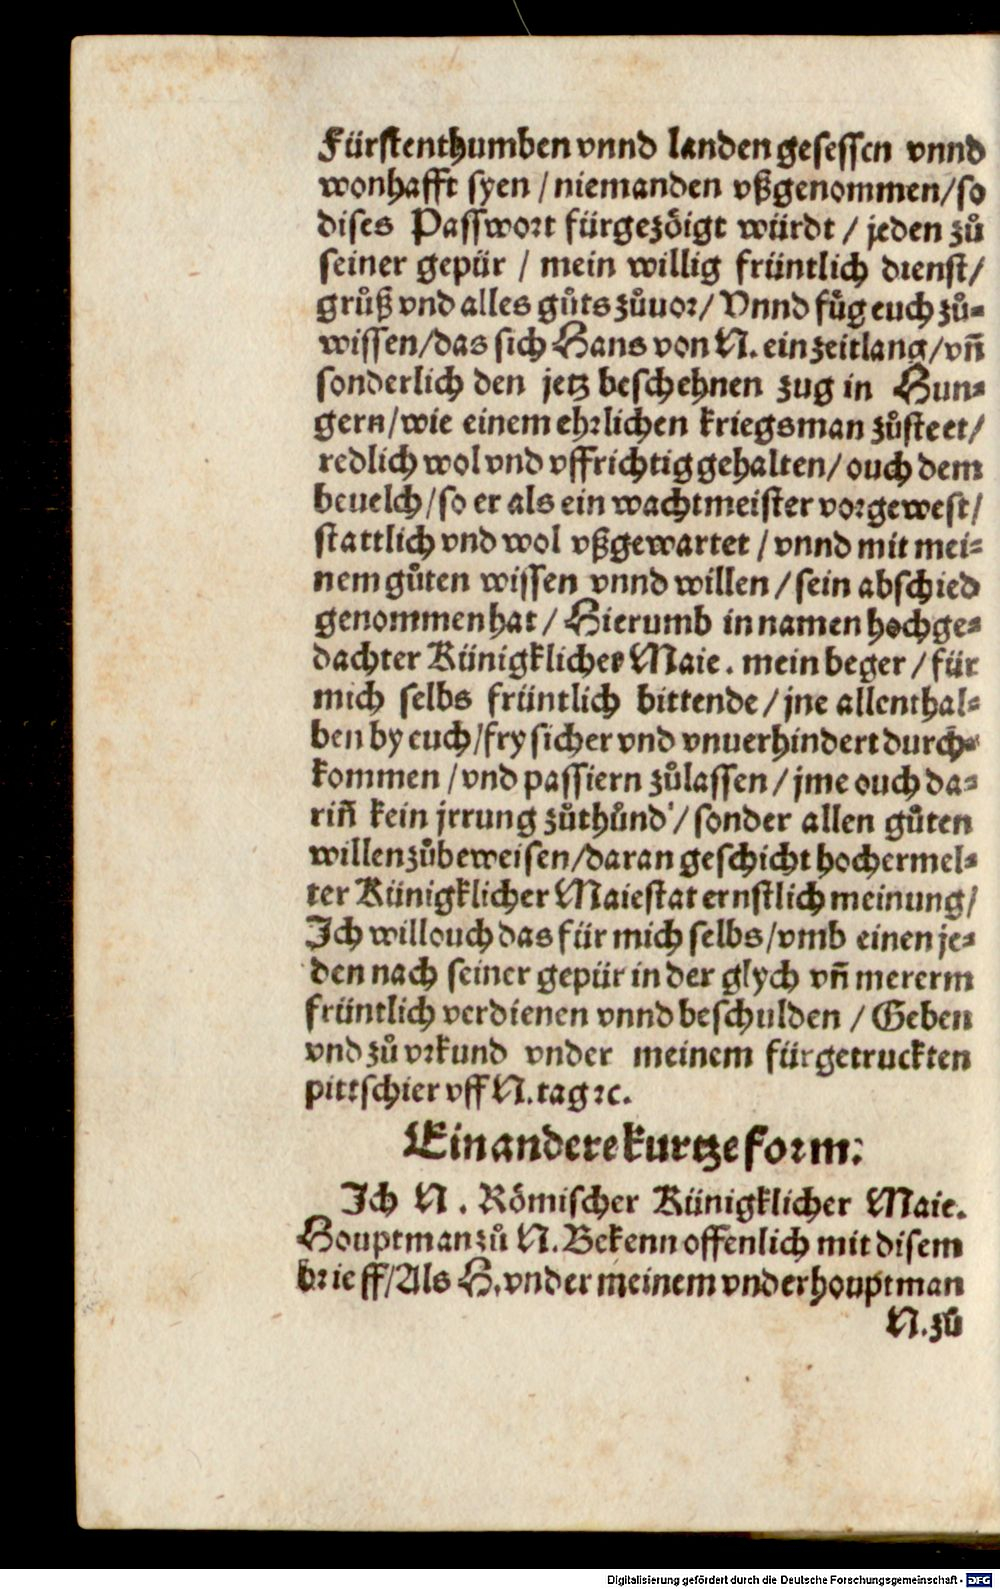 Fürstenthumben vnnd landen gesessen vnnd
wonhafft syen / niemanden vßgenommen/so
dises Passwort fürgezöigt würdt / jeden zů
seiner gepür / mein willig früntlich dienst/
grůß vnd alles gůts zůuor/ Vnnd fůg euch zů⸗
wissen/das sich Hans von N. ein zeitlang/vñ
sonderlich den jetz beschehnen zug in Hun⸗
gern/wie einem ehrlichen kriegsman zůsteet/
redlich wol vnd vffrichtig gehalten/ ouch dem
beuelch/so er als ein wachtmeister vor gewest/
stattlich vnd wol vßgewartet / vnnd mit mei⸗
nem gůten wissen vnnd willen / sein abschied
genommen hat / Hierumb in namen hochge⸗
dachter Künigklicher Maie. mein beger / für
mich selbs früntlich bittende / jne allenthal⸗
ben by euch/fry sicher vnd vnuerhindert durch⸗
kommen / vnd passiern zůlassen / jme ouch da⸗
riñ kein jrrung zůthůnd / sonder allen gůten
willen zůbeweisen/daran geschicht hochermel⸗
ter Künigklicher Maiestat ernstlich meinung/
Ich will ouch das für mich selbs/vmb einen je⸗
den nach seiner gepür in der glych vñ mererm
früntlich verdienen vnnd beschulden / Geben
vnd zů vrkund vnder meinem fürgetruckten
pittschier vff N. tag ꝛc.
Ein andere kurtze form:
Ich N. Römischer Künigklicher Maie.
Houptman zů N. Bekenn offenlich mit disem
brieff/Als H. vnder meinem vnderhouptman
N. zů
Digitalisierung gefördert durch die Deutsche Forschungsgemeinschaft - DFG